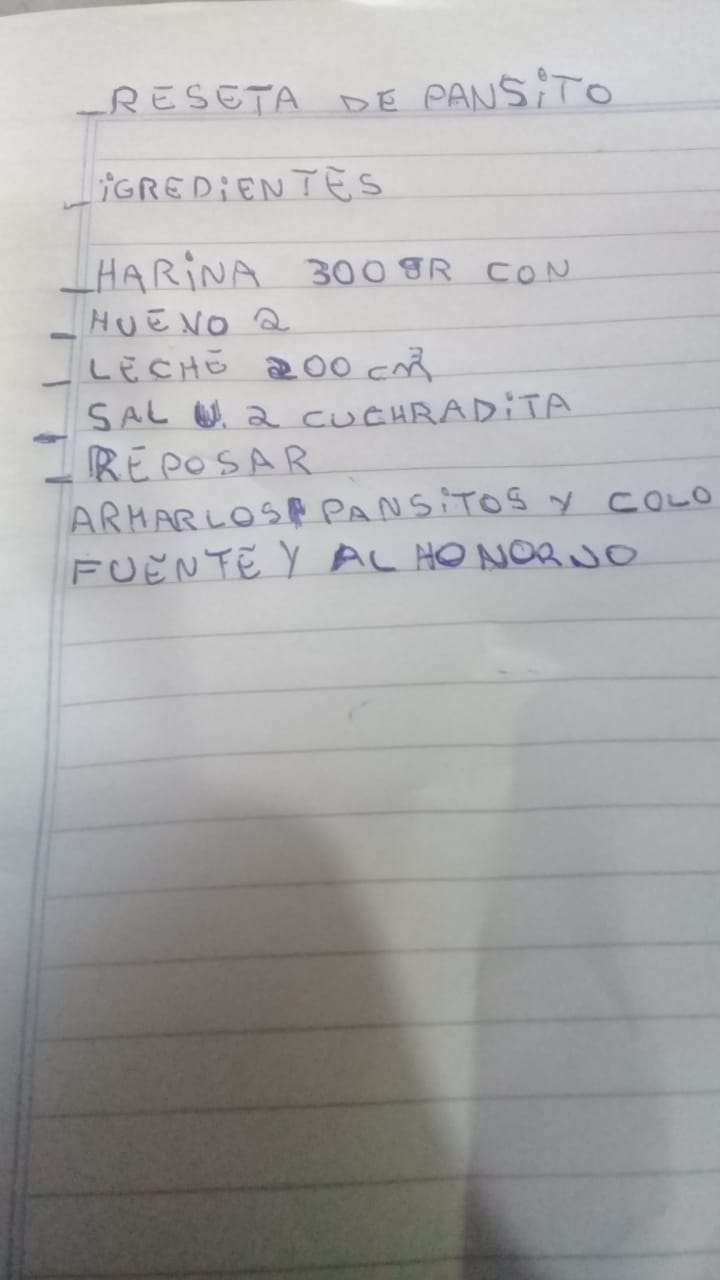 - RESETA DE PANSiTO
- iGREDiENTES
- HARiNA 300 GR CON
- HUEVO 2
- LECHE 200 cm3
- SAL 2 CUCHRADiTA
- REPOSAR
ARMARLOS PANSiTOS Y COLO
FUENTE Y AL HONORNO